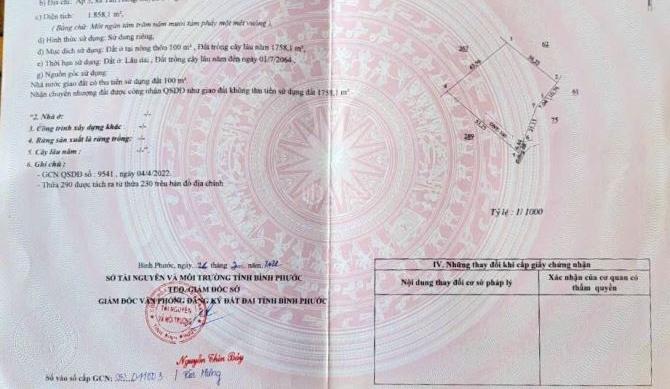 b) Địa chỉ: Ấp 5, xã
c) Diện tích: 1.858,1 m²,
( Bằng chữ: Một ngàn tám trăm năm mươi tám phẩy một mét vuông ).
d) Hình thức sử dụng: Sử dụng riêng,
đ) Mục đích sử dụng: Đất ở tại nông thôn 100 m², Đất trồng cây lâu năm 1758,1 m².
e) Thời hạn sử dụng: Đất ở: Lâu dài, Đất trồng cây lâu năm đến ngày 01/7/2064,
g) Nguồn gốc sử dụng:
Nhà nước giao đất có thu tiền sử dụng đất 100 m².
Nhận chuyển nhượng đất được công nhận QSDĐ như giao đất không thu tiền sử dụng đất 1758,1 m²
*2. Nhà ở: -/-
3. Công trình xây dựng khác : -/-
4. Rừng sản xuất là rừng trồng: -/-
5. Cây lâu năm : -/-
6. Ghi chú :
- GCN QSDĐ số : 9541 , ngày 04/4/2022.
- Thửa 290 được tách ra từ thửa 230 trên bản đồ địa chính
267
1
62
2
63
75
289
Tỷ lệ : 1/ 1000
Bình Phước, ngày 26 năm 2022
SỞ TÀI NGUYÊN VÀ MÔI TRƯỜNG TỈNH BÌNH PHƯỚC
TUQ. GIÁM ĐỐC SỞ
GIÁM ĐỐC VĂN PHÒNG ĐĂNG KÝ ĐẤT ĐAI TỈNH BÌNH PHƯỚC
SỞ
TÀI NGUYÊN
VÀ MÔI TRƯỜNG
Nguyễn Thìn Bảy
Số vào sổ cấp GCN:
IV. Những thay đổi khi cấp giấy chứng nhận
Nội dung thay đổi cơ sở pháp lý
Xác nhận của cơ quan có thẩm quyền